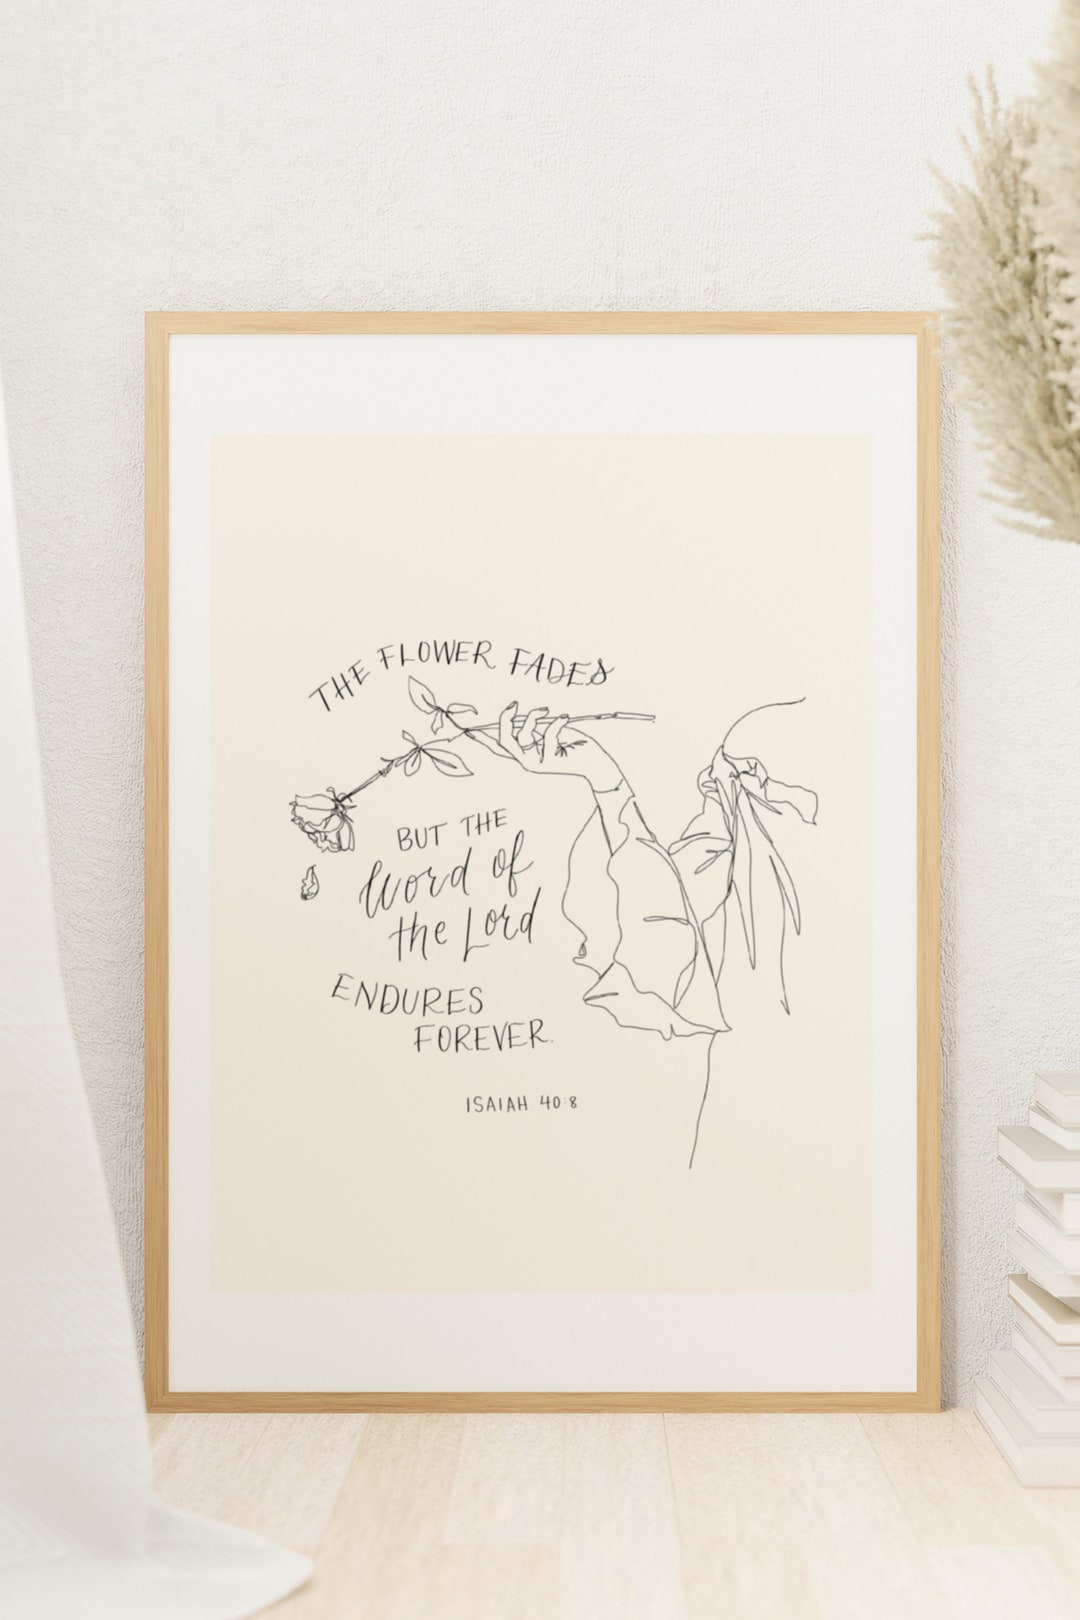 THE FLOWER FADES
BUT THE
Word of
the Lord
ENDURES
FOREVER.
ISAIAH 40:8